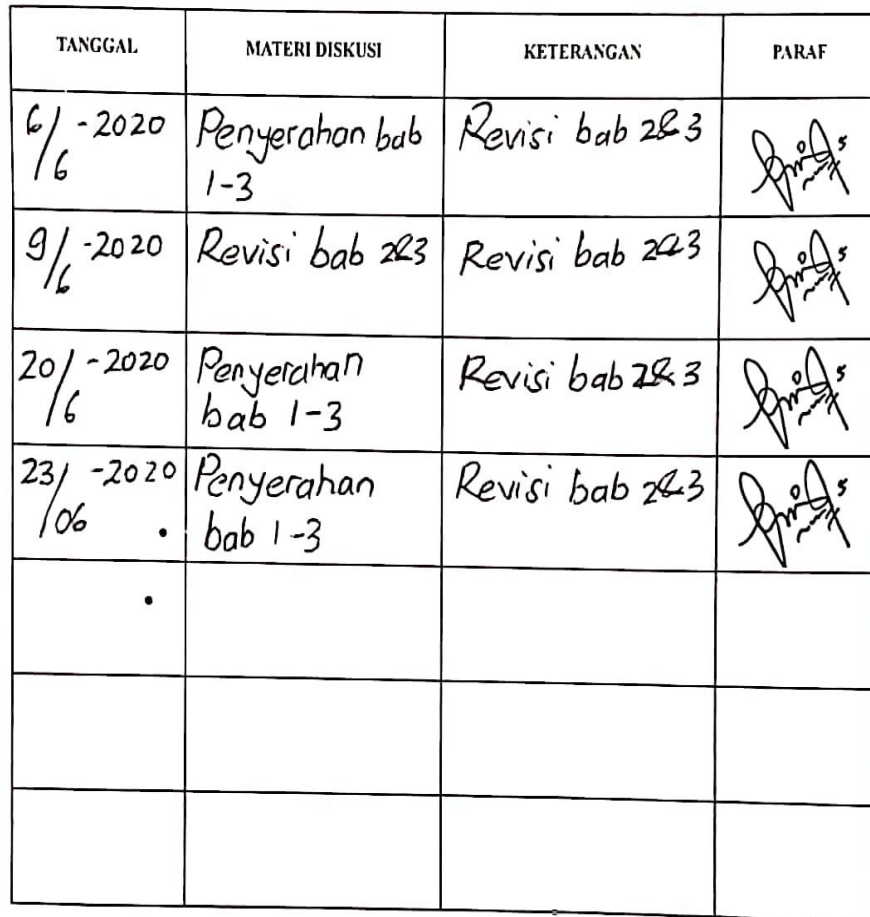 TANGGAL MATERI DISKUSI KETERANGAN PARAF
6/6-2020 Penyerahan bab Revisi bab 2&3
1-3
9/6-2020 Revisi bab 2&3 Revisi bab 2&3
20/6-2020 Penyerahan Revisi bab 2&3
bab 1-3
23/06-2020 Penyerahan Revisi bab 2&3
bab 1-3